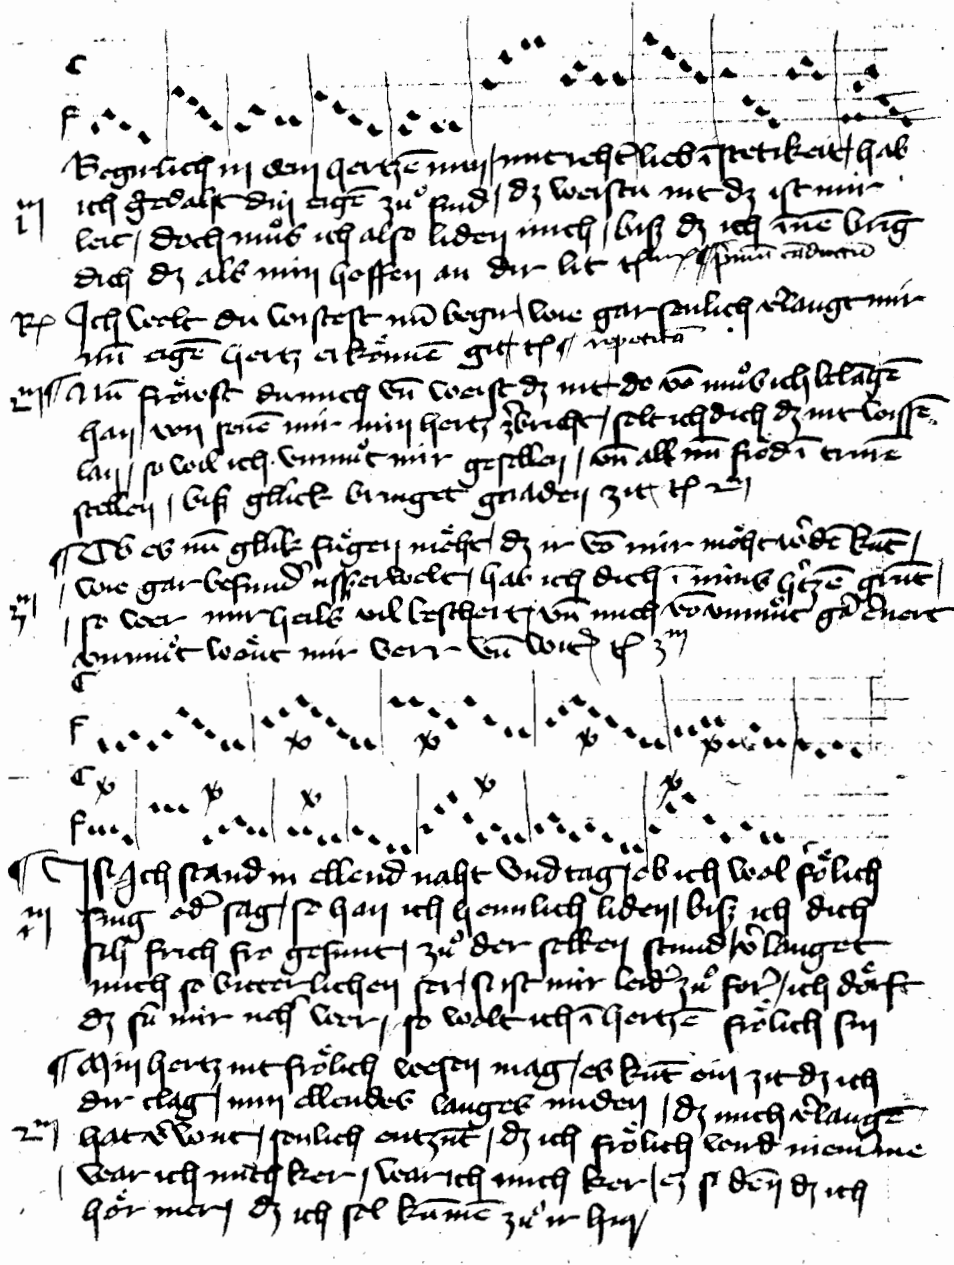 C
F
Begirlich in dem hertzē min / mit reht' lieb ī stetikeit / hab
ich gedaht din eigē zuͦ sind / dz weistu nit dz ist mir
leit / doch muͦs ich also liden mich / bisz dz ich inē bring
dich dz als min hoffen an dir lit
Rͬ Ich wolt du wistest mī begir / wie gar senlich v'langt mir
mī eigē hertz erkōmē git repetitio
2m Nū froͤwst du mich vn̄ weist dz nit do vō muͦs ich belāgē
han / von senē mir min hertz z'bricht / solt ich dich dz nit wissē
lan / so wil ich vnmuͦt mir gesellen / vn̄ all mī froͤd ī trurē
stellen / bisz glück bringet gnaden zit
Ob es mī glük fuͤgen moͤht / dz ir vō mir moͤht w'dē kūt /
wie gar besund' vsserwelt / hab ich dich ī mins h'tzē grūt /
3m so wer mir heils vil beschert / vn̄ mich vō vnmuͦt gar ernert
vnmuͦt wont mir verr vn̄ wit 3m
C
F
C
F
Ich stand in ellend naht vnd tag / ob ich wol froͤlich
sing od' sag / so han ich heimlich liden / bisz ich dich
sih frisch fro gesunt / zuͦ der selben stund / v'langet
mich so bitterlichen ser / si ist mir leid' zuͦ ver / ich doͤrft
dz sū mir nah wer / so wolt ich ī hertzē froͤlich sin
Min hertz nit froͤlich wesen mag / es kūt ein zit dz ich
dir clag / min ellendes langes miden / dz mich v'langē
2m hat v'wūt / senlich entzūt / dz ich froͤlich wird niemme
war ich mich ker / war ich mich ker / ez si den dz ich
hoͤr mer / dz ich sol kumē zuͦ ir hin /